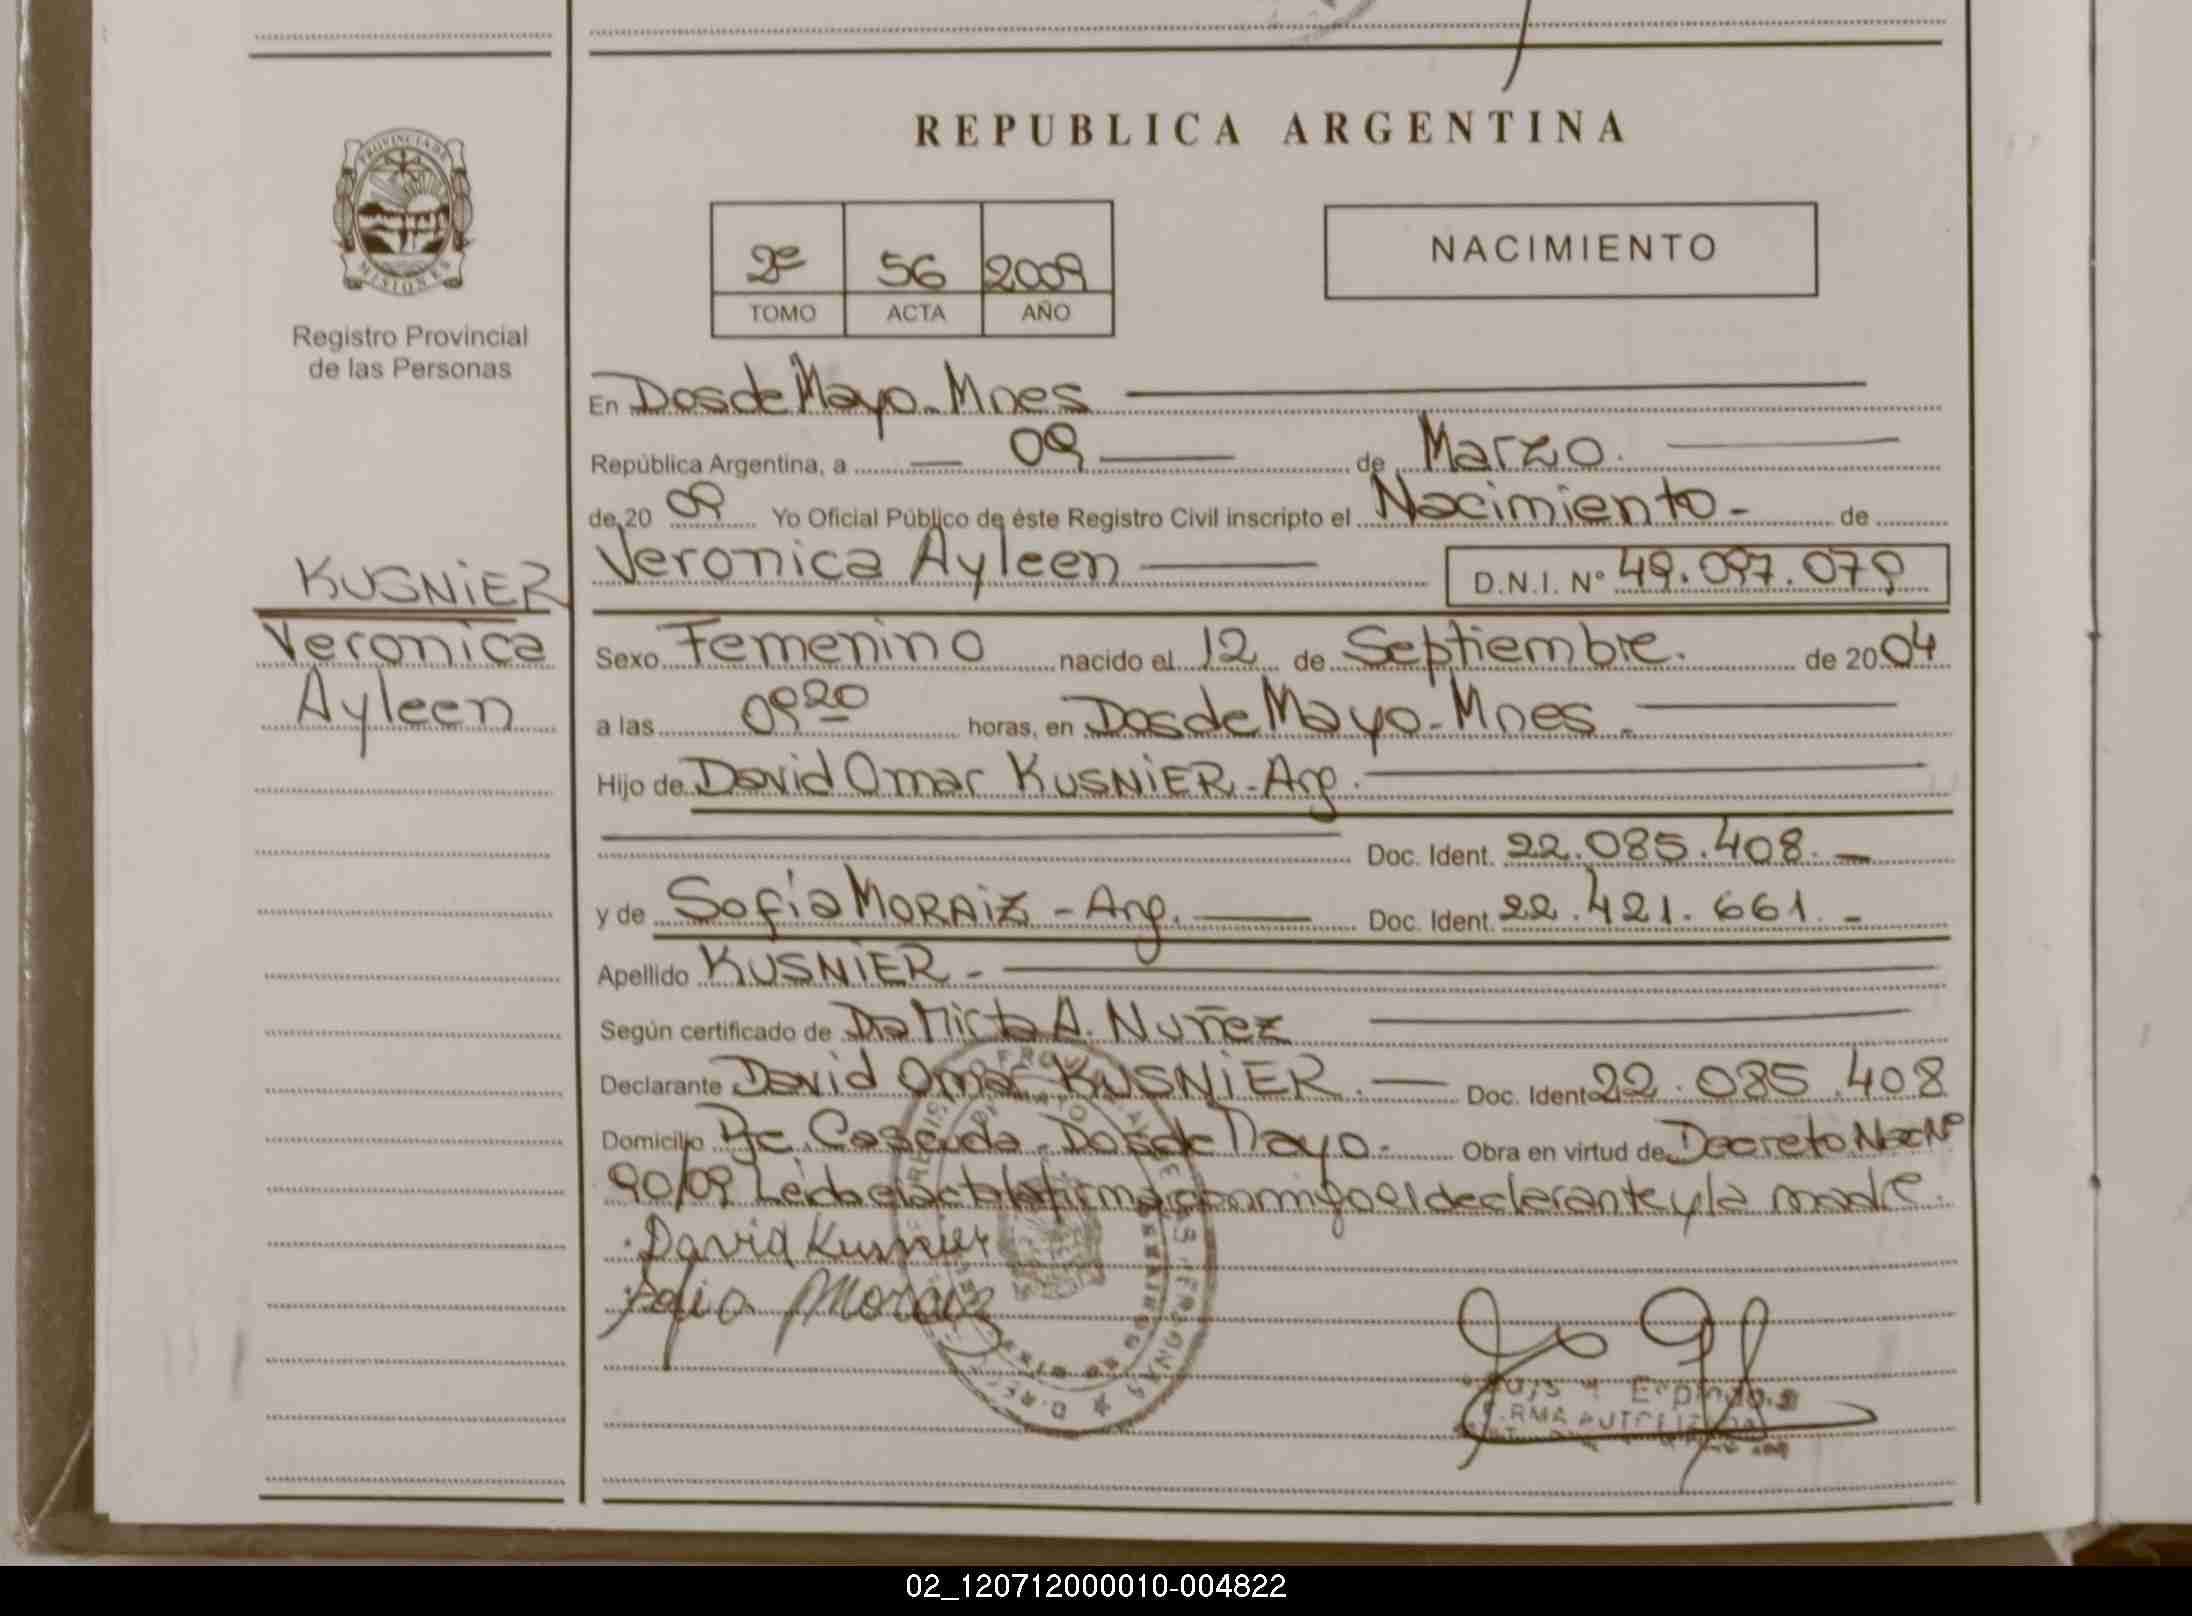 REPUBLICA ARGENTINA
PROVINCIA DE
MISIONES
Registro Provincial
de las Personas
2º 56 2009
TOMO ACTA AÑO
NACIMIENTO
En Dos de Mayo - Mnes
República Argentina, a 09 de Marzo.
de 2009 Yo Oficial Público de éste Registro Civil inscripto el Nacimiento - de
Veronica Ayleen D.N.I. Nº 49.097.079
KUSNIER
Veronica
Ayleen
Sexo Femenino nacido el 12 de Septiembre. de 2004
a las 09 20 horas, en Dos de Mayo - Mnes -
Hijo de David Omar KUSNIER - Arg.
Doc. Ident. 22.085.408. -
y de Sofía MORAIZ - Arg. Doc. Ident. 22.421.661. -
Apellido KUSNIER -
Según certificado de Da Mirta A. Nuñez
Declarante David Omar KUSNIER. - Doc. Ident 22.085.408
Domicilio Dos de Mayo - Obra en virtud de Decreto Nac Nº
90/09 Leida el acta la firma conmigo el declarante y la madre.
David Kusnier
Sofia Moraiz
FIRMA AUTORIZADA
02_120712000010-004822